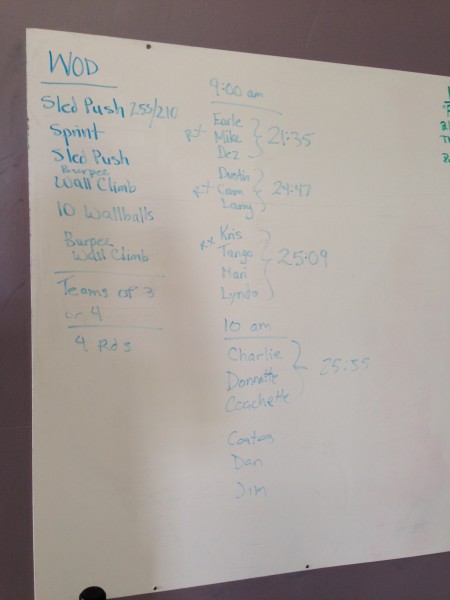 WOD
Sled Push 255/210
Sprint
Sled Push
Burpee
Wall Climb
10 Wallballs
Burpee
Wall Climb
Teams of 3
or 4
4 Rds
9:00 am
Earle
RX Mike 21:35
Dez
Dustin
RX 24:47
Larry
RX Kris
Tango 25:09
Mari
Lynda
10 am
Charlie
Donnette 25:35
Coachette
Dan
Jim